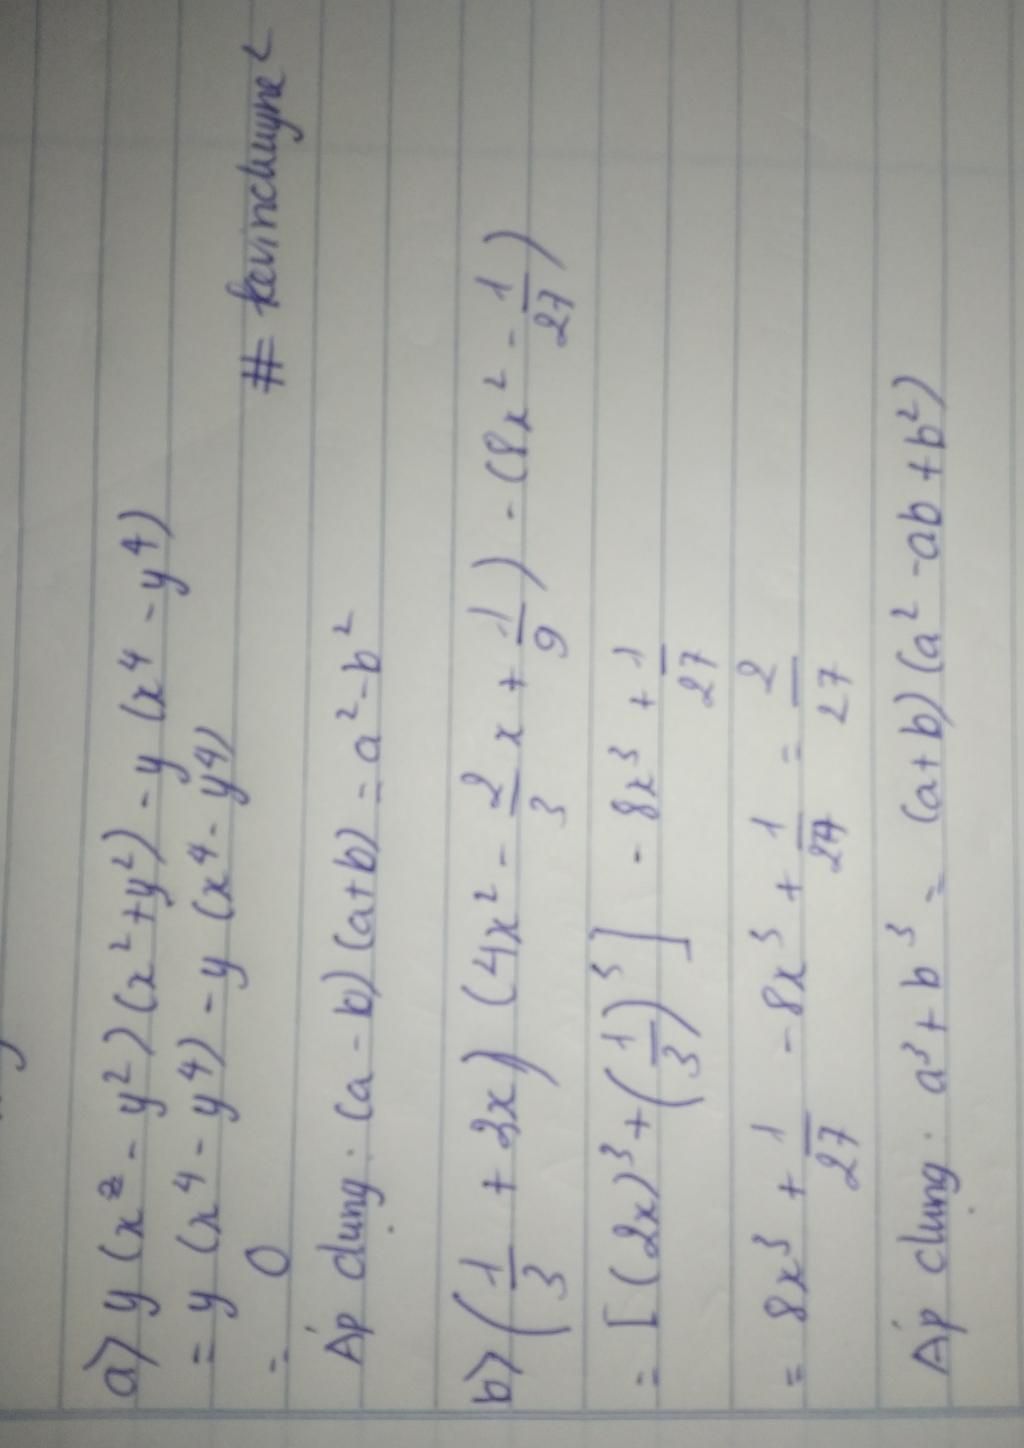 a) y (x² - y²) (x² + y²) - y (x⁴ - y⁴)
= y (x⁴ - y⁴) - y (x⁴ - y⁴)
= 0
# kevinchuyne <
Áp dụng: (a - b) (a + b) = a² - b²
b) (1/3 + 2x) (4x² - 2/3 x + 1/9) - (8x² - 1/27)
= [(2x)³ + (1/3)³] - 8x³ + 1/27
= 8x³ + 1/27 - 8x³ + 1/27 = 2/27
Áp dụng: a³ + b³ = (a + b) (a² - ab + b²)